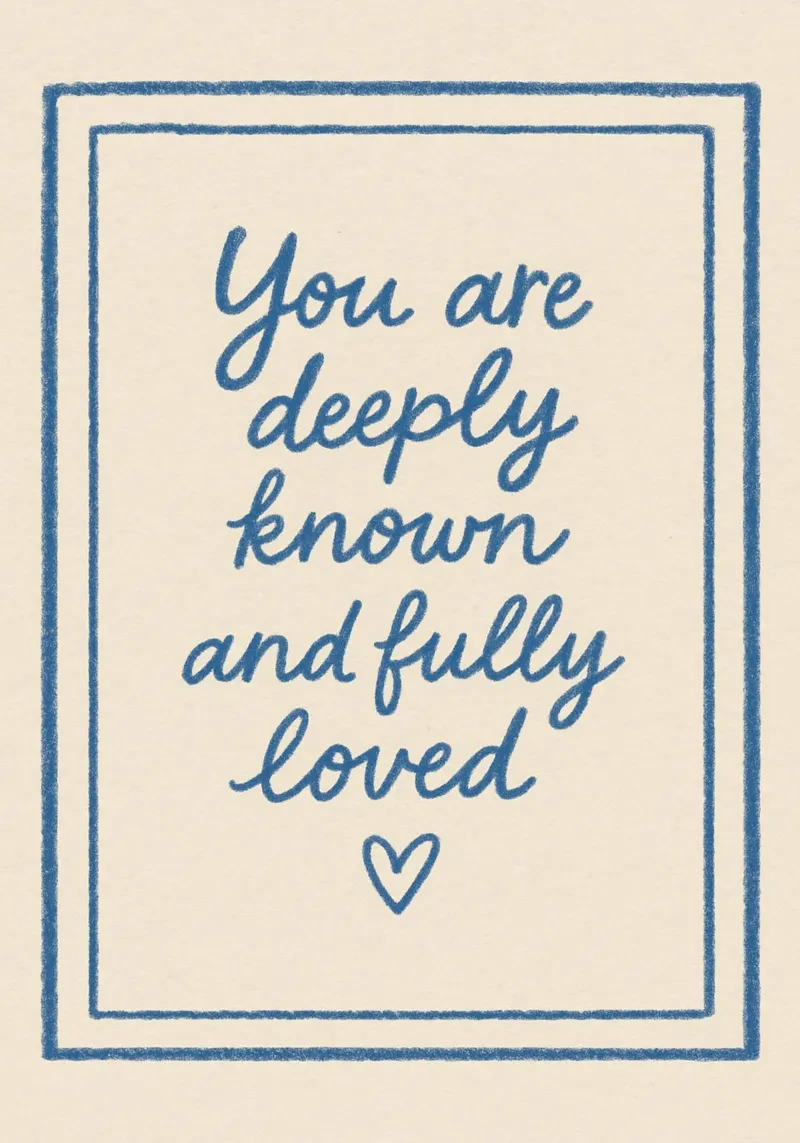 You are
deeply
known
and fully
loved